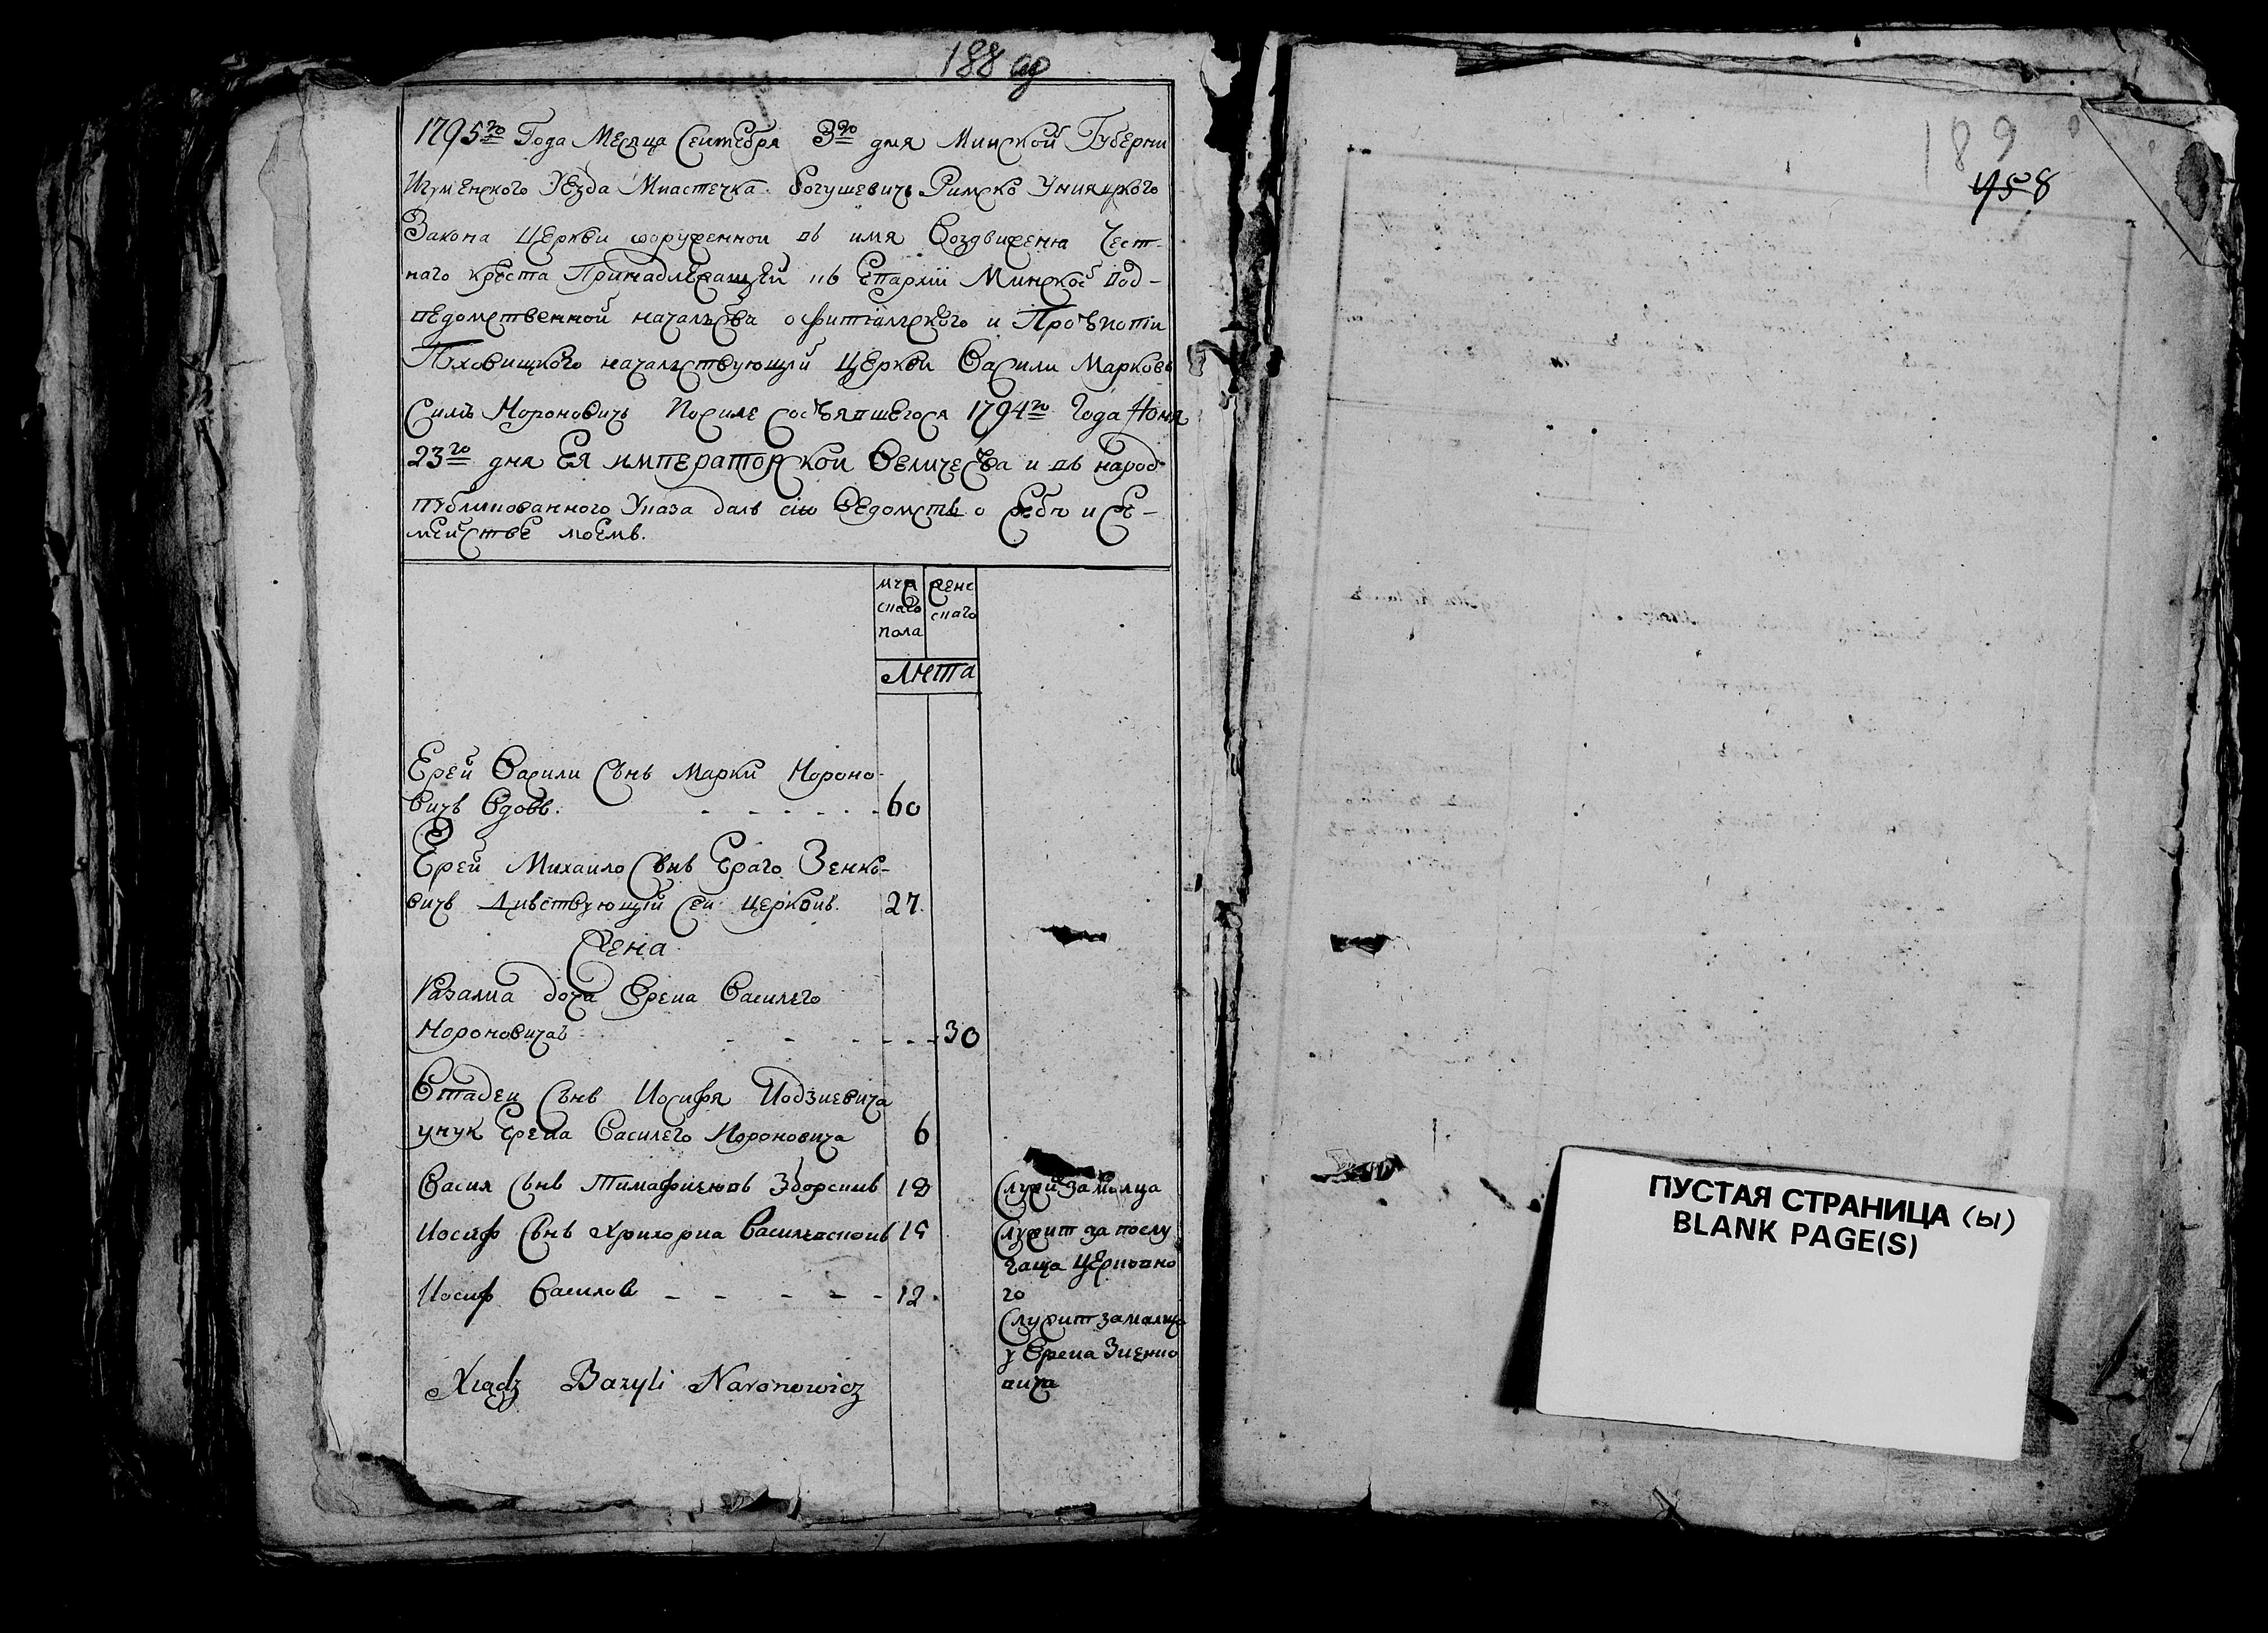 188 об
1795го Года Месяца Сентебря 3го дня Минской Губерни
Игуменского Уезда Миастечка Богушевичь Римско Униацкого
Закона Церкви соруженной въ имя Воздвиженя Чест-
наго креста Принадлежащей къ Епархіи Минской под-
ведомственной началства офитіалского и Протекопіи
Пуховицкого началствующій Церкви Васили Марковъ
Синъ Нороновичъ Посиле состоявшегося 1794го Года Июня
23го дня ЕЯ ИМПЕРАТОРской Величества и въ народ
публикованного Указа далъ сію Ведомсть о себѣ и се-
мействе моемъ.
муж
скаго
пола
женс
скаго
Лѣта
Ерей Васили Сынъ Марки Нороно-
вичъ Вдовъ. - - - - - - 60
Ерей Михаило Сынъ Ераго Зенко-
вичъ Дивствующій Сей церкви. 27.
Жена
Разалиа дочка Ереиа Василего
Нороновичав - - - - - 30
Стадеи Сынъ Иосифа Иодзиевича
унук Ереиа Василего Нороновича 6
Васил Сынъ Тимафиеювъ Зборскив 18
Служит за малца
Иосиф Сынъ Хрихориа Василевсков 15
Служит за послу
гаща Церковно
го
Иосиф Василов - - - - - 12.
Служит за малца
у Ереиа Зиенко
вича
Xiądz Bazyli Naronowicz
189
458
ПУСТАЯ СТРАНИЦА (Ы)
BLANK PAGE(S)